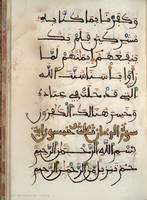 وكفرنا بما كنا به
مشركين فلم يك
ينفعهم إيمنهم لما
رأوا بأسنا سنت الله
التي قد خلت في عباده
وخسر هنالك الكفرون
سورة
بسم الله الرحمن الرحيم
حم تنزيل من الرحمن الرحيم